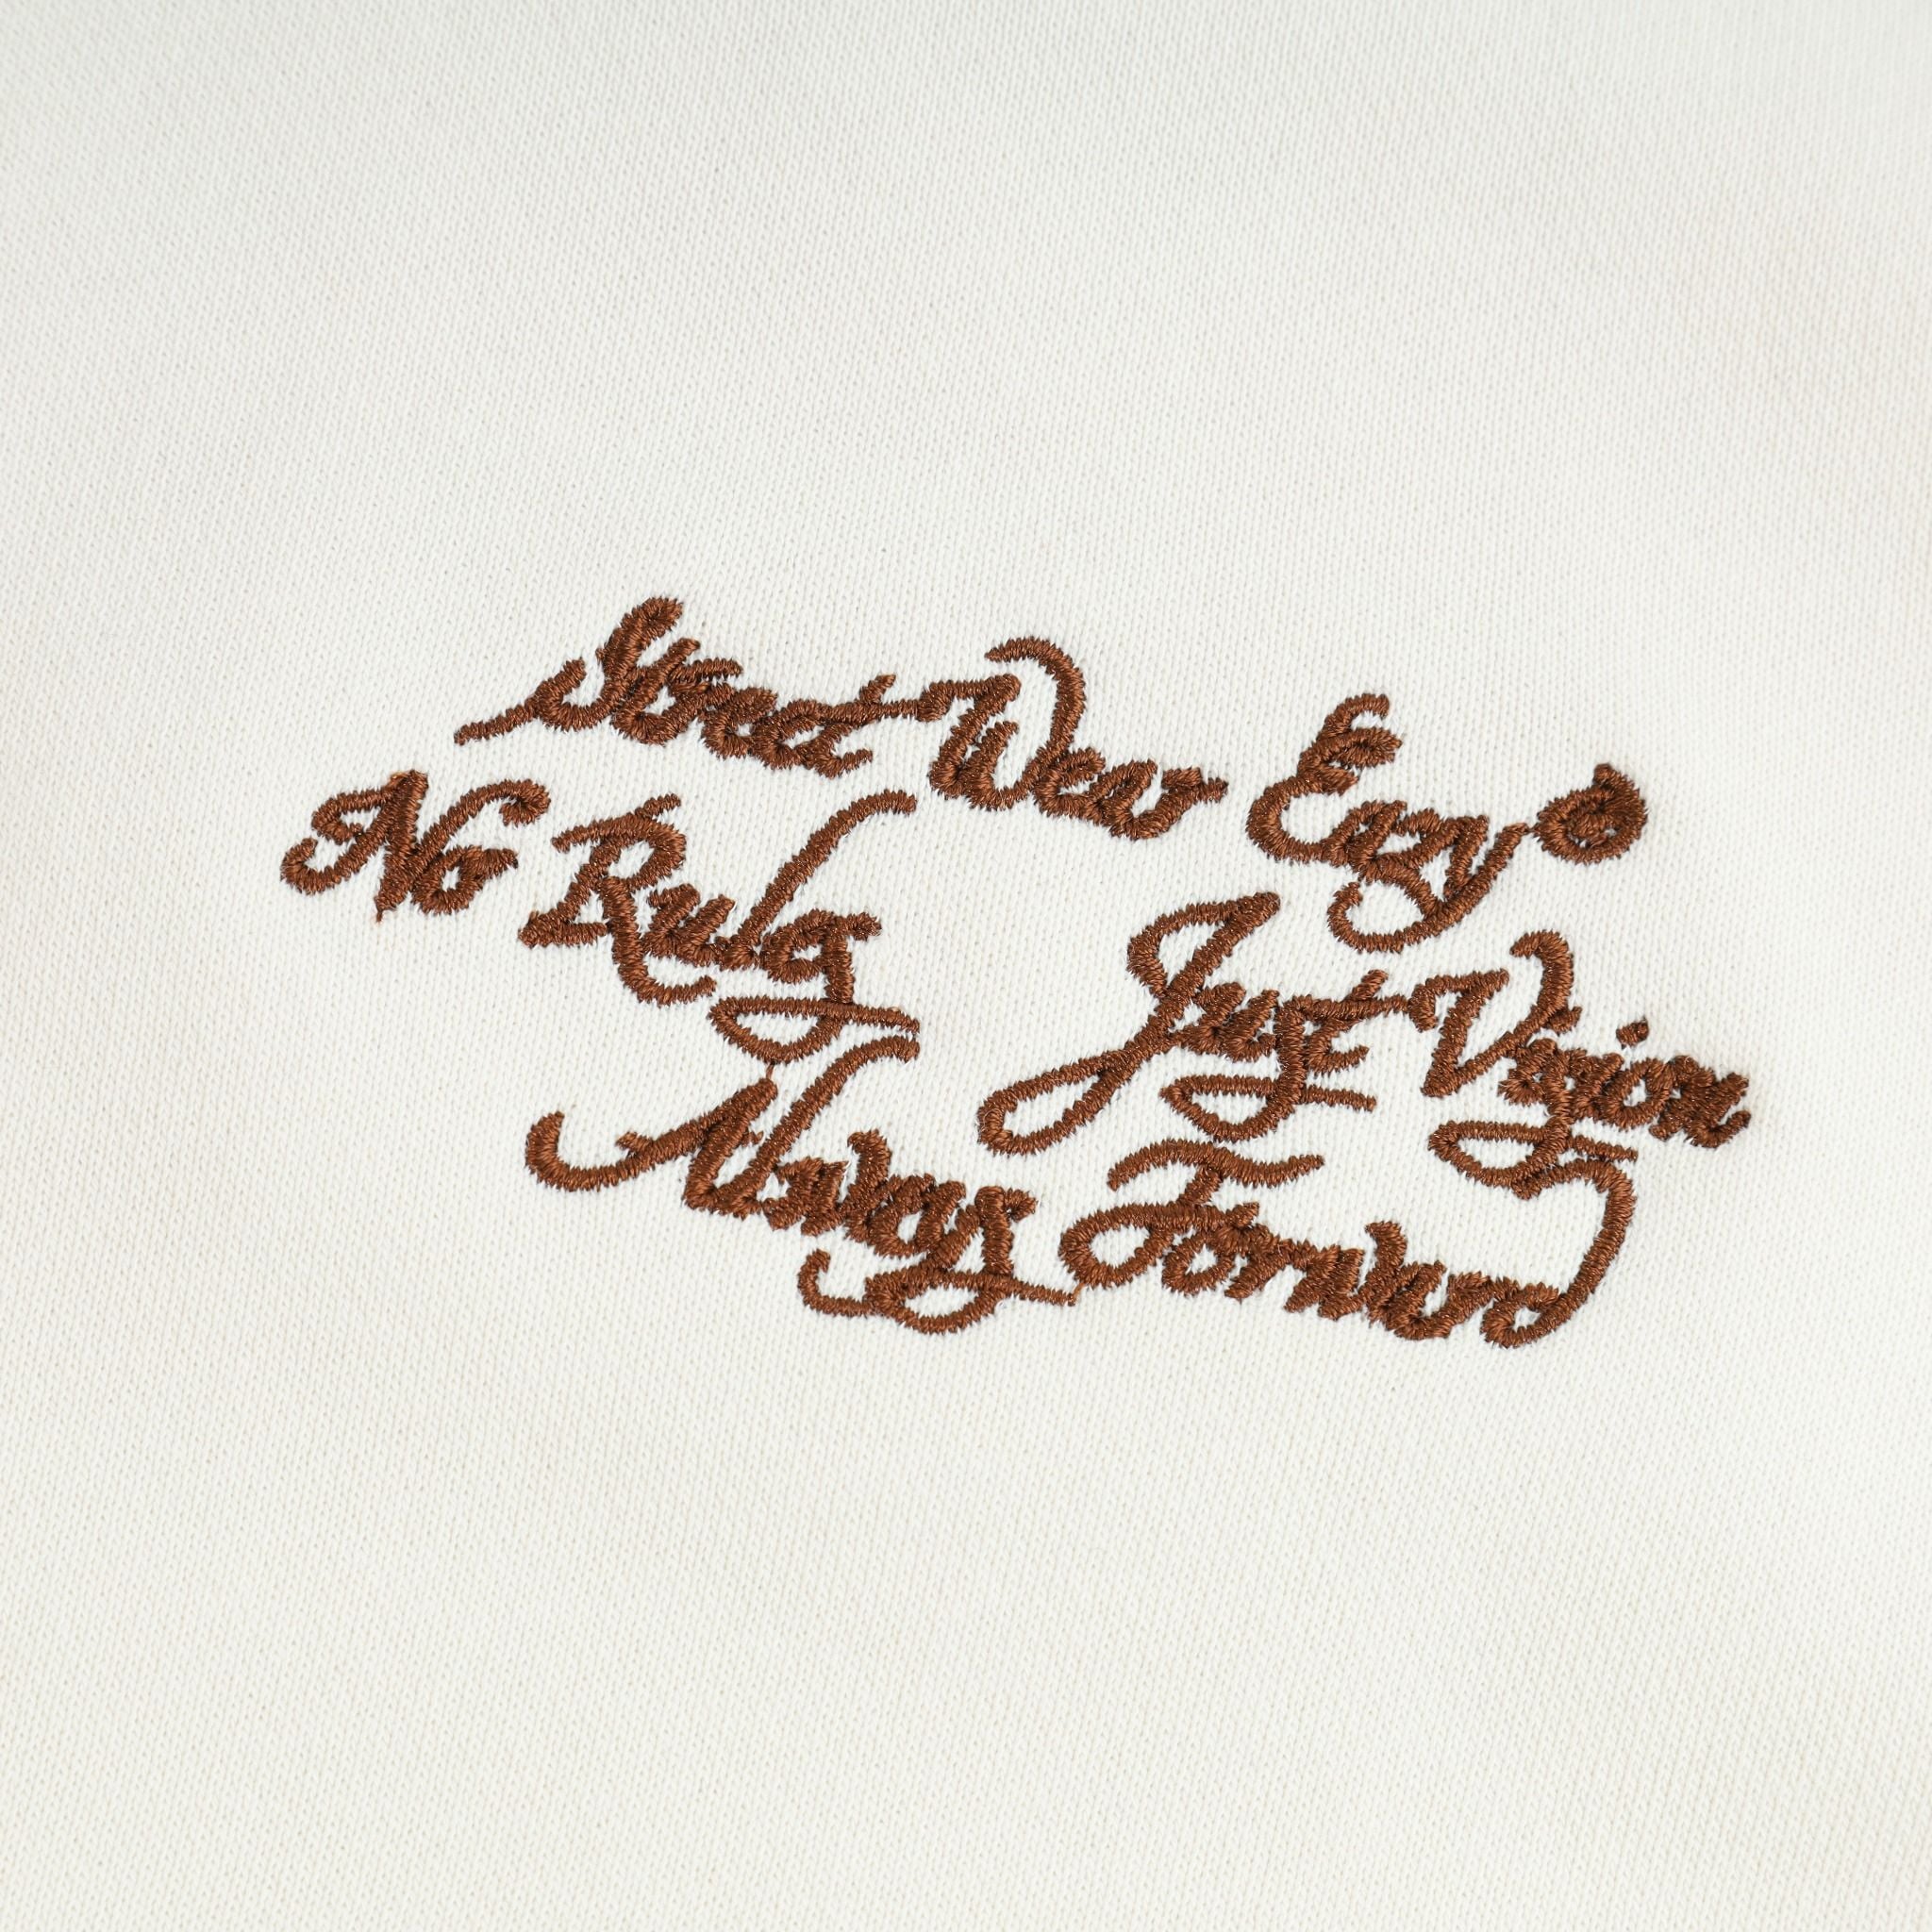 Street Wear Eazy®
No Rules Just Vision
Always Forward